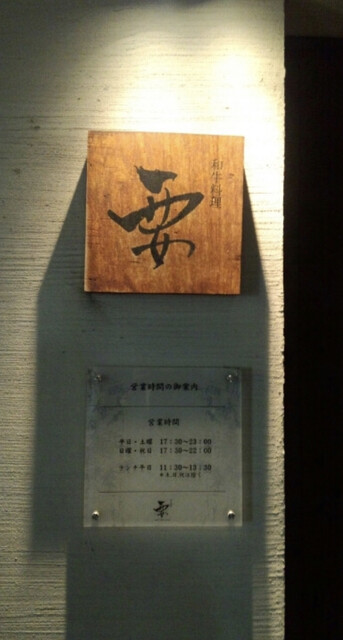 和牛料理
要
営業時間の御案内
営業時間
平日・土曜 17:30~23:00
日曜・祝日 17:30~22:00
ランチ平日 11:30~13:30
要